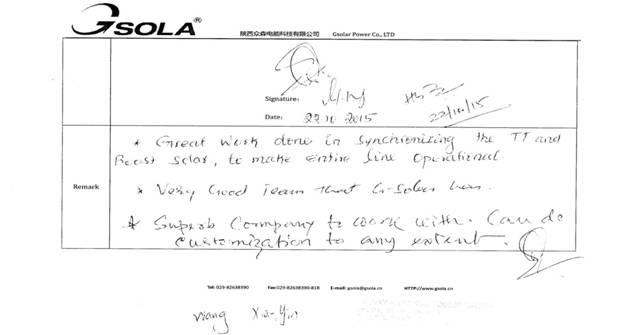 GSOLA®
陕西众森电能科技有限公司 Gsolar Power Co., LTD
Signature:
22/10/15
Date: 22.10.2015
Remark
* Great work done in synchronizing the TT and
Boost Solar, to make entire line operational.
* Very Good Team that G-Solar has.
* Superb Company to work with. Can do
customization to any extent.
Tel: 029-82638390 Fax:029-82638390-818 E-mail: gsola@gsola.cn HTTP://www.gsola.cn
Wang